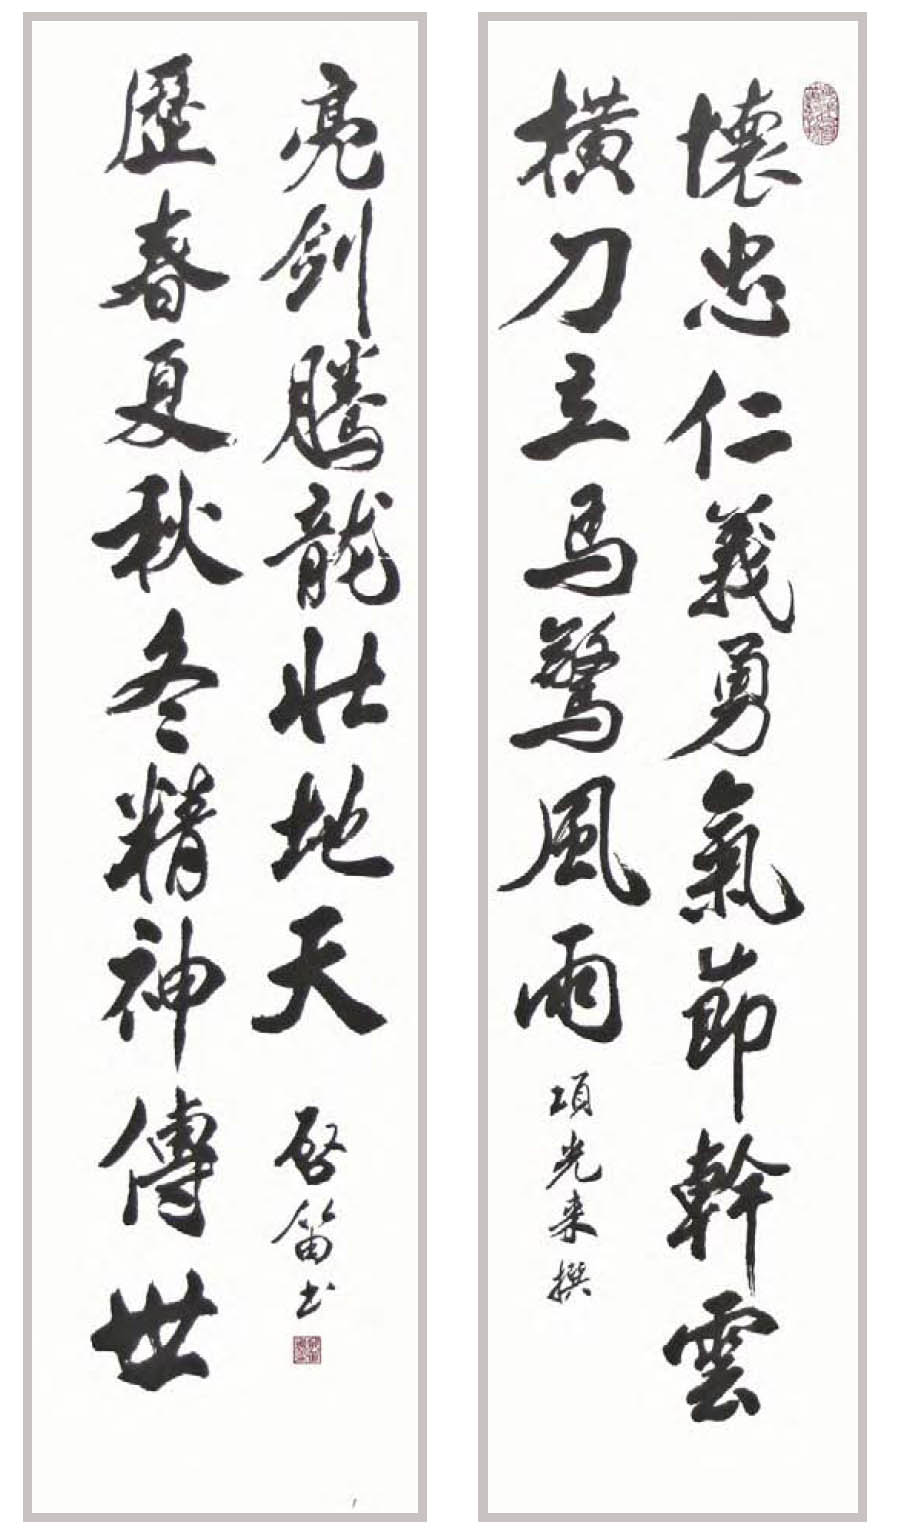 懷忠仁義勇氣節幹雲
橫刀立馬驚風雨
項光来撰
歷春夏秋冬精神傳世
亮劍騰龍壯地天
啟笛书